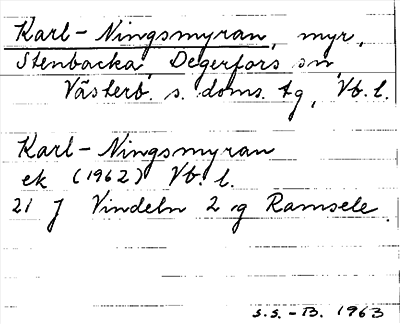 Karl-Ningsmyran, myr,
Stenbacka, Degerfors sn,
Västerb. s. doms. tg, Vb. l.
Karl-Ningsmyran
ek (1962) Vb. l.
21 J Vindeln 2 g Ramsele.
s.s. - B. 1963